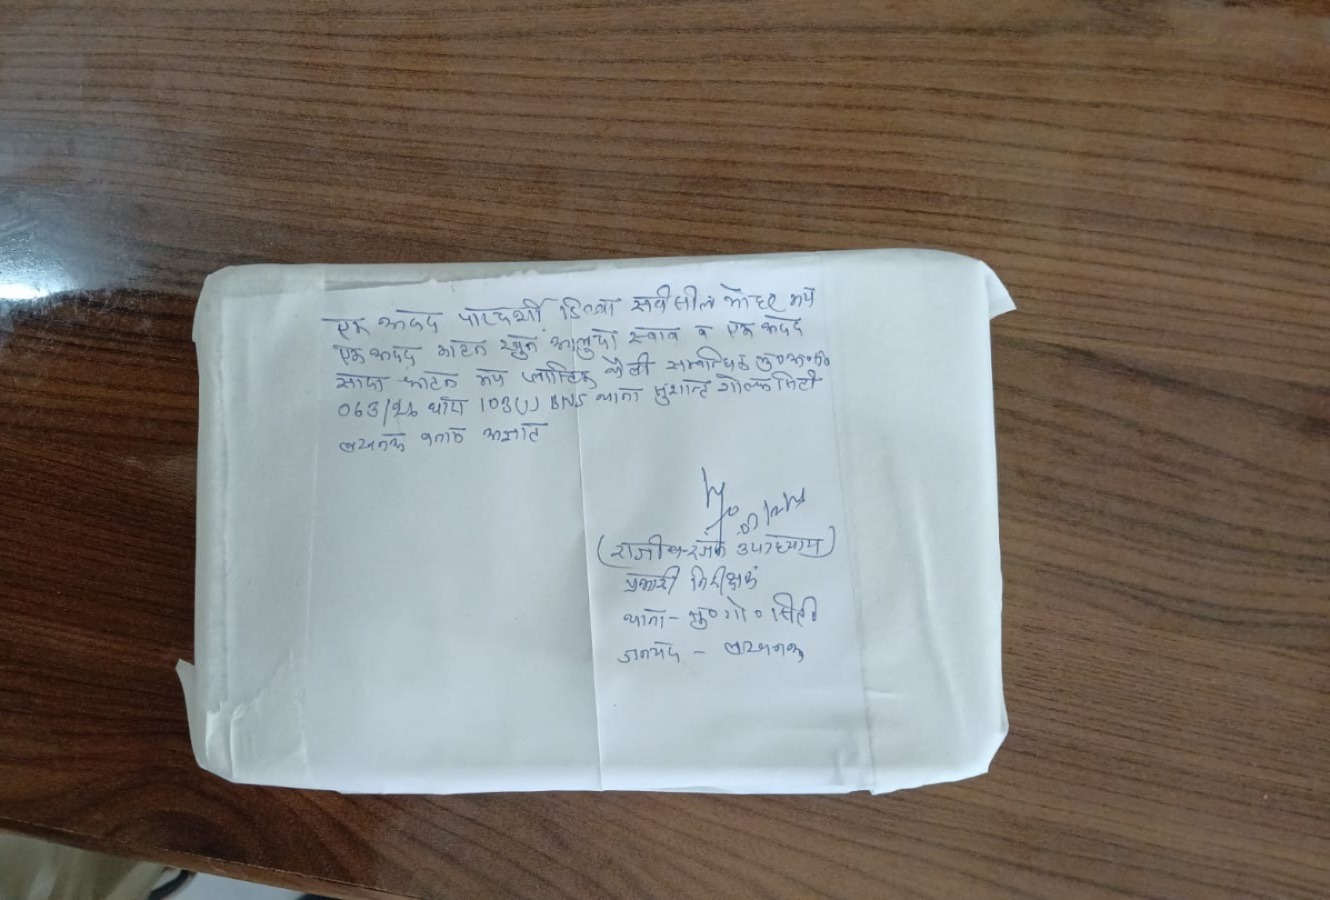 एक अदद पारदर्शी डिब्बा सर्वसील मोहर मय
एक अदद काटन खून आलूदा स्वाब व एक अदद
सादा काटन मय प्लास्टिक थैली सम्बन्धित मु०अ०सं०
063/26 धारा 103(1) BNS थाना सुशान्त गोल्फ सिटी
लखनऊ बनाम अज्ञात
(राजीव रंजन उपाध्याय)
प्रभारी निरीक्षक
थाना - सु०गो० सिटी
जनपद - लखनऊ